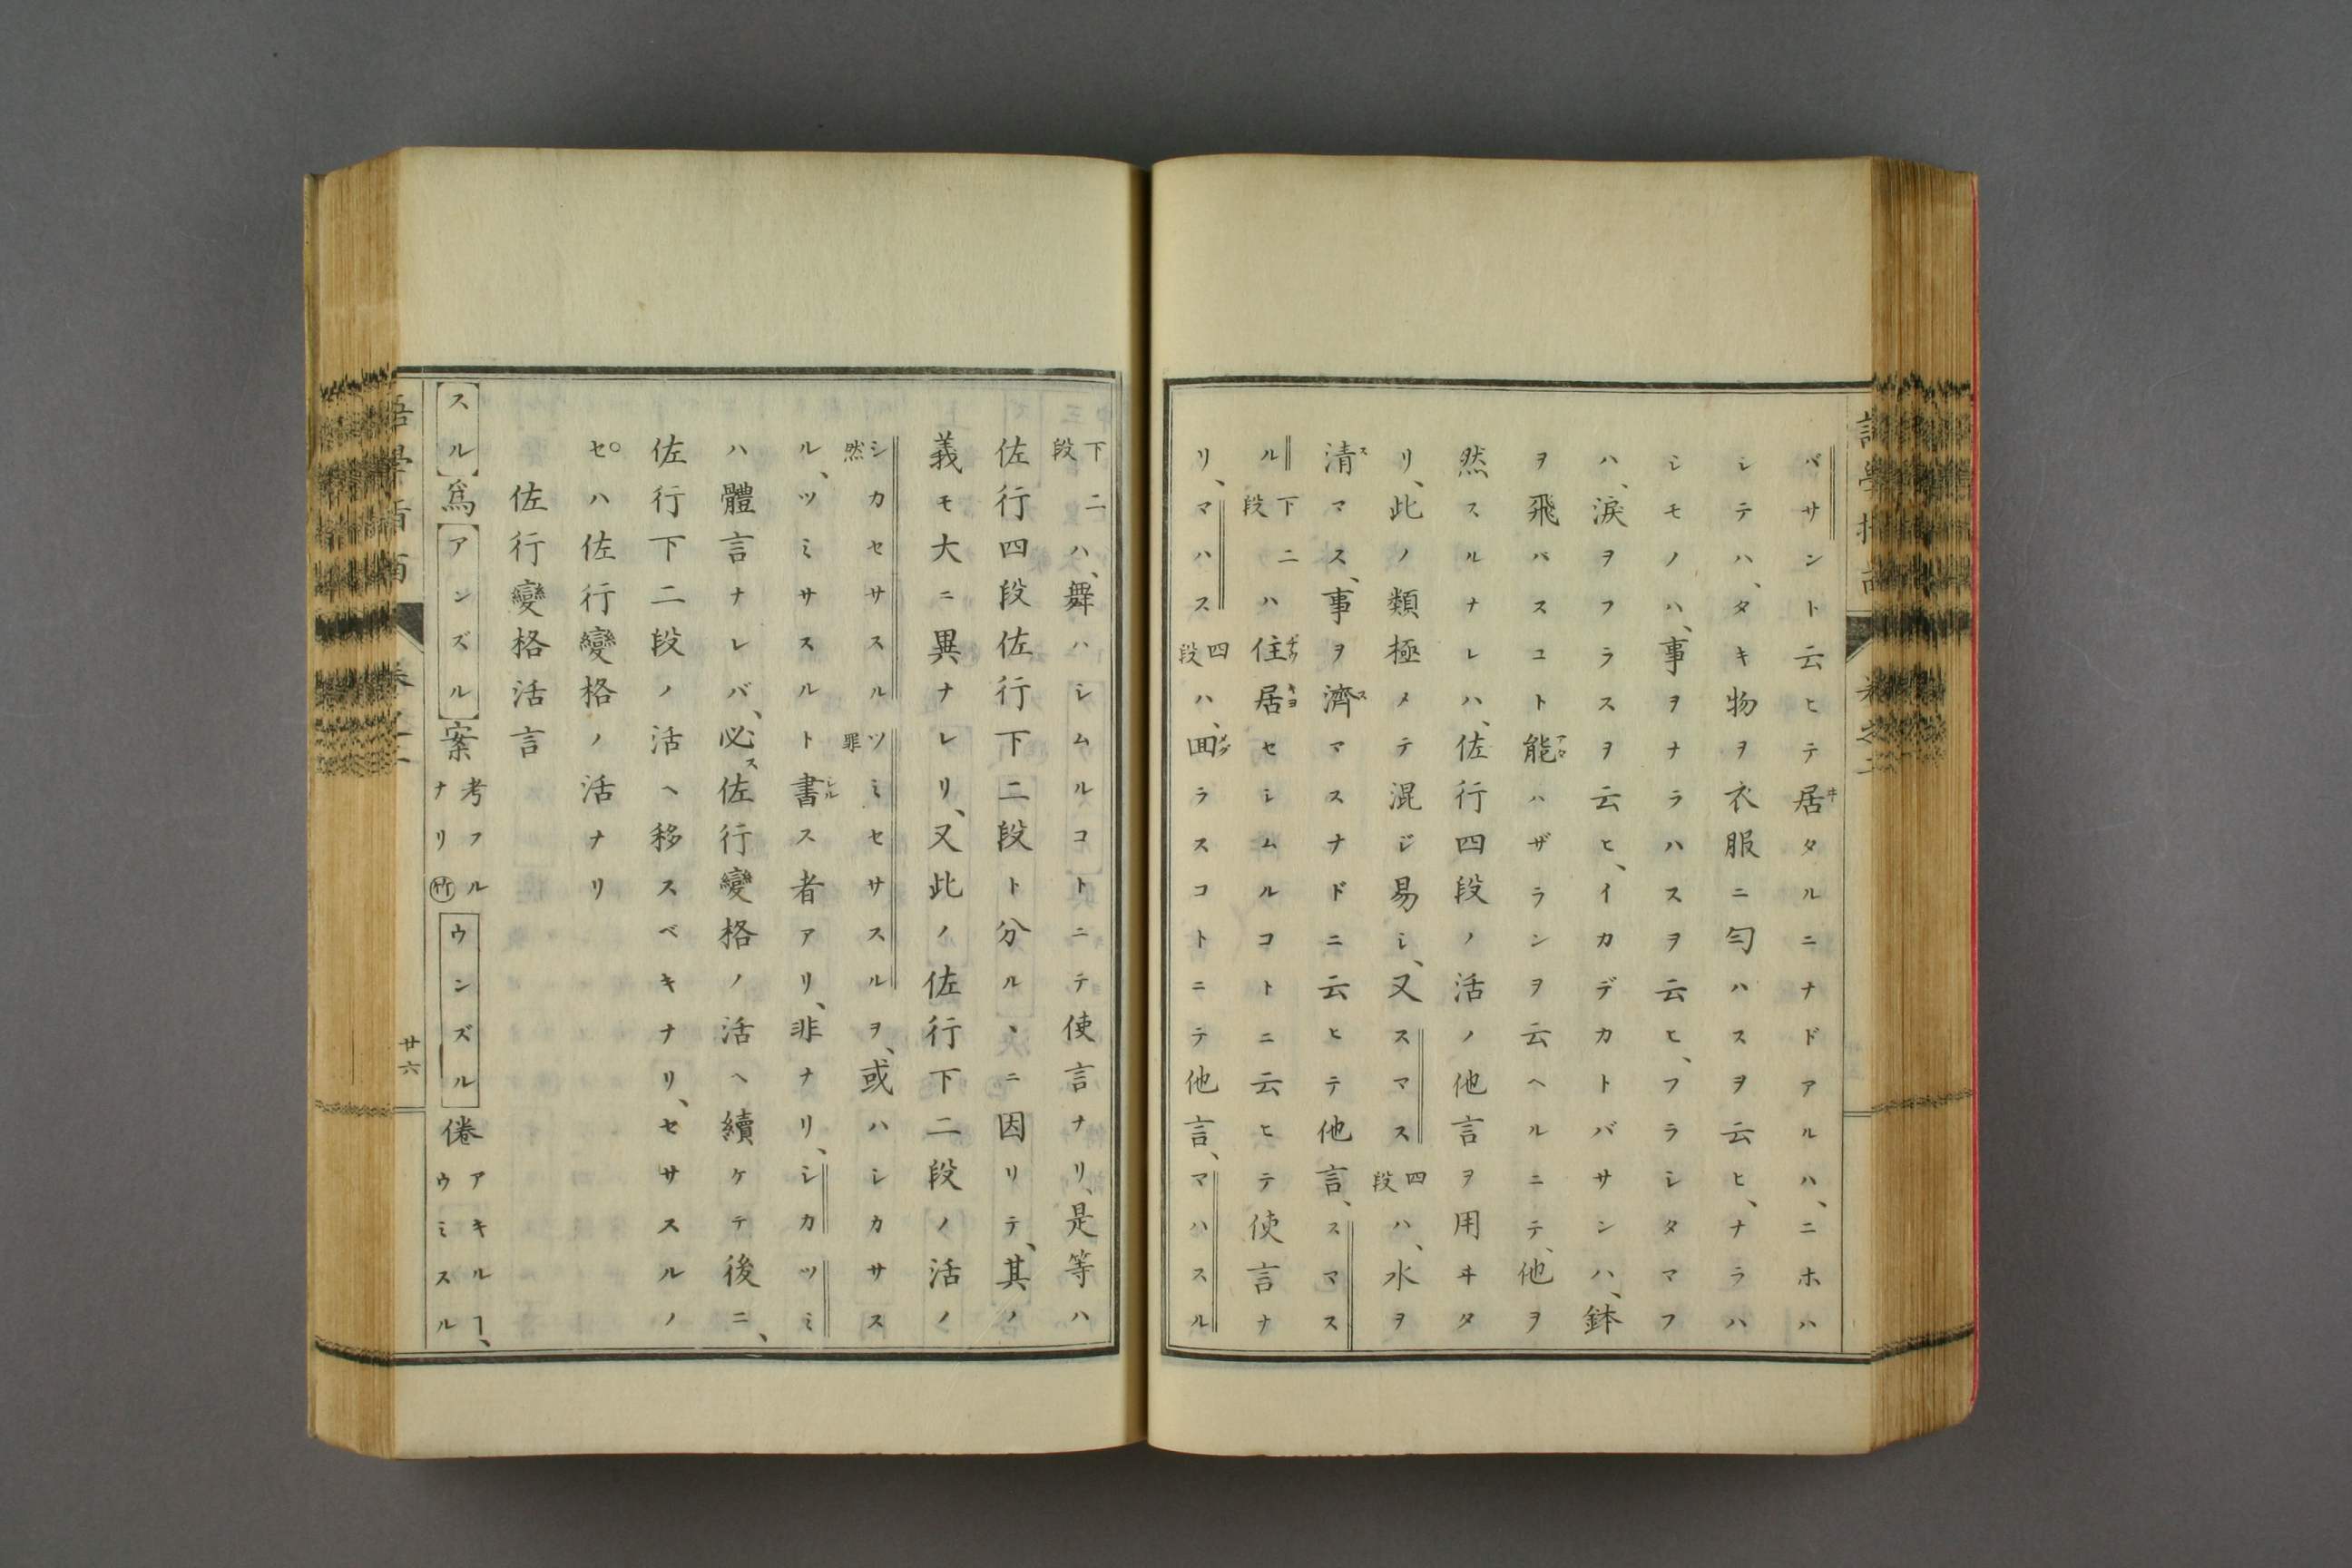 バサント云ヒテ居タルニナドアルハ、ニホハ
シテハ、タキ物ヲ衣服ニ匂ハスヲ云ヒ、ナラハ
シモノハ、事ヲナラハスヲ云ヒ、フラシタマフ
ハ、涙ヲフラスヲ云ヒ、イカデカトバサンハ、鉢
ヲ飛バスコト能ハザランヲ云ヘルニテ、他ヲ
然スルナレハ、佐行四段ノ活ノ他言ヲ用ヰタ
リ、此ノ類極メテ混ジ易シ、又スマス四段ハ、水ヲ
清マス、事ヲ濟マスナドニ云ヒテ他言、スマス
ル下二段ハ住居セシムルコトニ云ヒテ使言ナ
リ、マハス四段ハ、囬ラスコトニテ他言、マハスル
下二段ハ、舞ハシムルコトニテ使言ナリ、是等ハ
佐行四段佐行下二段ト分ル、ニ因リテ、其ノ
義モ大ニ異ナレリ、又此ノ佐行下二段ノ活ノ
シカセサスル然ツミセサスル罪ヲ、或ハシカサス
ル、ツミサスルト書ス者アリ、非ナリ、シカツミ
ハ體言ナレバ、必ス佐行變格ノ活ヘ續ケテ後ニ、
佐行下二段ノ活ヘ移スベキナリ、セサスルノ
セハ佐行變格ノ活ナリ
佐行變格活言
スル爲アンズル案考フルナリ㊟ウンズル倦アキルヿ、ウミスル
廿六